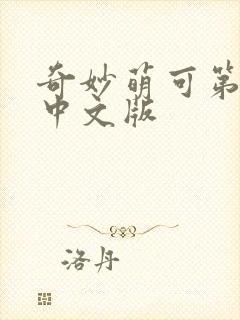 奇妙萌可第
中文版
洛丹